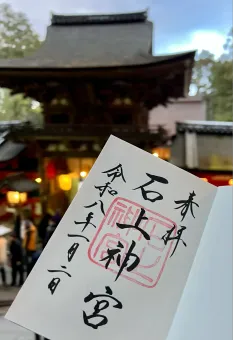 奉拝
石上神宮
令和八年一月二日